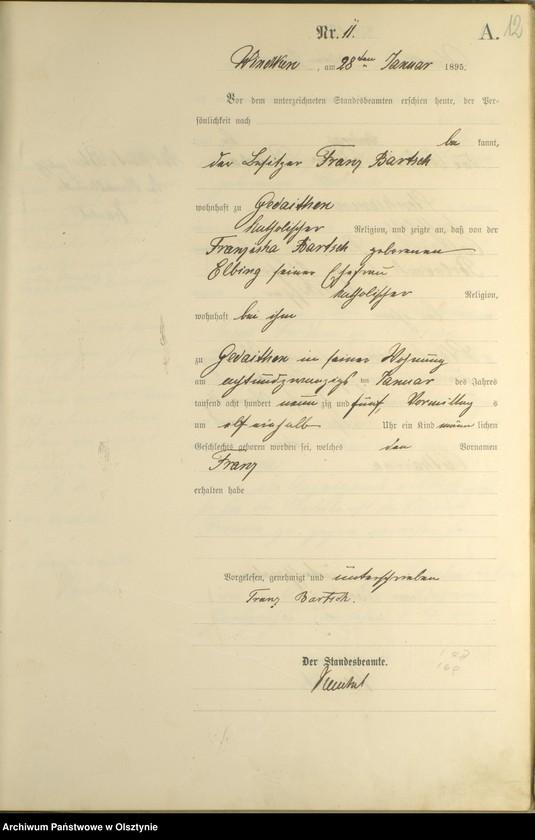 12
Nr. 11.
A.
am 28ten Januar 1895.
Vor dem unterzeichneten Standesbeamten erschien heute, der Per-
sönlichkeit nach
be kannt,
der Besitzer Franz Bartsch
wohnhaft zu Gedaithen
katholischer Religion, und zeigte an, daß von der
Franziska Bartsch geborenen
Elbing seiner Ehefrau
katholischer Religion,
wohnhaft bei ihm
zu Gedaithen in seiner Wohnung
am achtundzwanzigs ten Januar des Jahres
tausend acht hundert neun zig und fünf, Vormittag s
um elf einhalb Uhr ein Kind männ lichen
Geschlechts geboren worden sei, welches den Vornamen
Franz
erhalten habe
Vorgelesen, genehmigt und unterschrieben
Franz Bartsch.
Der Standesbeamte.
Archiwum Państwowe w Olsztynie